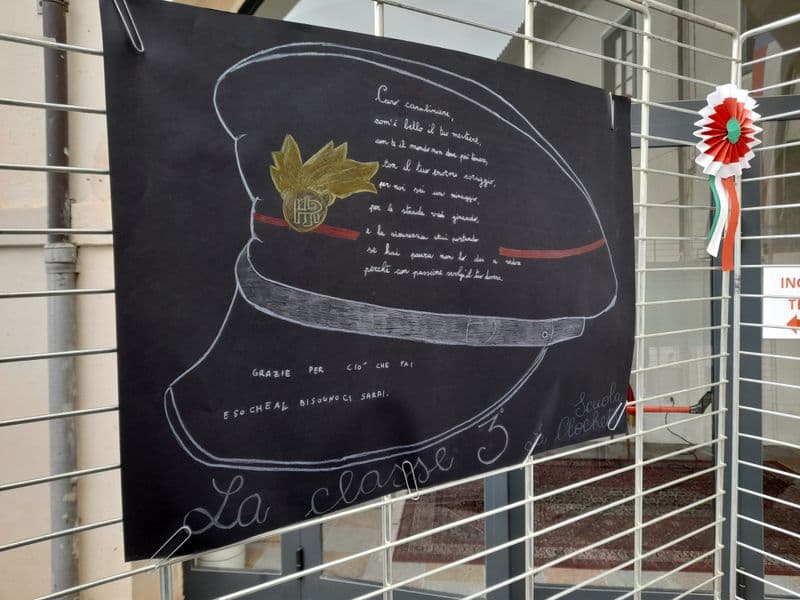 Caro carabiniere,
com'è bello il tuo mestiere,
con te il mondo non deve più temere,
con il tuo enorme coraggio,
per noi sei un miraggio,
per le strade vai girando,
e la sicurezza stai portando
se hai paura non lo dai a vedere
perché con passione svolgi il tuo dovere.
GRAZIE PER CIO' CHE FAI
E SO CHE AL BISOGNO CI SARAI.
La classe 3°
Scuola